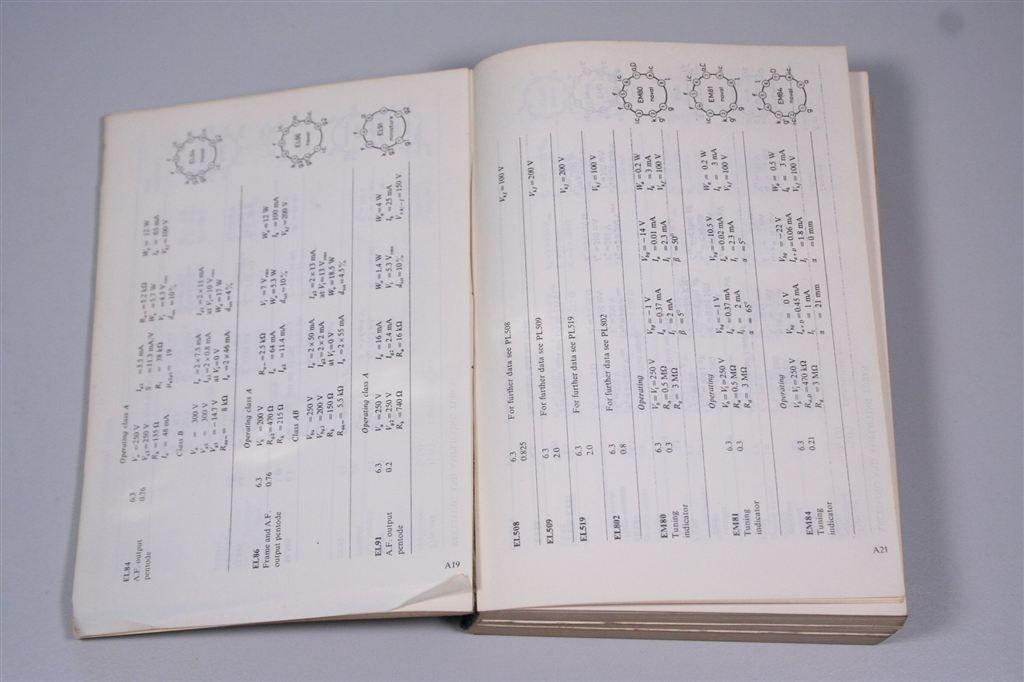 EL84
A.F. output
pentode
6.3
0.76
Operating class A
Va =250 V
Vg2=250 V
Rk =135 Ω
Ia = 48 mA
Ig2 =5.5 mA
S =11.3 mA/V
Ri = 38 kΩ
μg2g1= 19
Ra~=5.2 kΩ
Wo =5.7 W
Vi =4.3 Vrms
dtot=10%
Wa= 12 W
Ik = 65 mA
Vkf=100 V
EL84
noval
Class B
Va = 300 V
Vg2 = 300 V
Vg1 = −14.7 V
Raa~= 8 kΩ
Ia =2×7.5 mA
Ig2=2×0.8 mA
at Vi=0 V
Ia =2×46 mA
Ig2=2×11 mA
at Vi=10 V
Wo=17 W
dtot=4%
EL86
Frame and A.F.
output pentode
6.3
0.76
Operating class A
Va =200 V
Rg2=470 Ω
Rk =215 Ω
Ra~=2.5 kΩ
Ia = 64 mA
Ig2 =11.4 mA
Vi =7 Vrms
Wo=5.3 W
dtot=10%
Wa=12 W
Ik =100 mA
Vkf=200 V
EL86
noval
Class AB
Vba =250 V
Vbg2 =200 V
Rk =150 Ω
Raa~= 5.5 kΩ
Ia =2×50 mA
Ig2=2×2 mA
at Vi=0 V
Ia =2×55 mA
Ig2=2×13 mA
at Vi=13 Vrms
Wo=18.5 W
dtot=4.5%
EL91
A.F. output
pentode
6.3
0.2
Operating class A
Va =250 V
Vg2=250 V
Rk =740 Ω
Ia =16 mA
Ig2=2.4 mA
Ra=16 kΩ
Wo=1.4 W
Vi =5.3 Vrms
dtot=10%
Wa=4 W
Ik =25 mA
=150 V
EL91
miniature
A19
EL508
6.3
0.825
For further data see PL508
Vkf=100 V
EL509
6.3
2.0
For further data see PL509
Vkf=200 V
EL519
6.3
2.0
For further data see PL519
Vkf=200 V
EL802
6.3
0.8
For further data see PL802
Vkf=100 V
EM80
Tuning
indicator
6.3
0.3
Operating
Vb=Vl=250 V
Ra=0.5 MΩ
Rg= 3 MΩ
Vbg=−1 V
Ia =0.37 mA
Il =2 mA
β =5°
Vbg=−14 V
Ia =0.01 mA
Il =2.3 mA
β =50°
Wa=0.2 W
Ik =3 mA
Vkf=100 V
EM80
noval
EM81
Tuning
indicator
6.3
0.3
Operating
Vb=Vl=250 V
Ra=0.5 MΩ
Rg= 3 MΩ
Vbg=−1 V
Ia =0.37 mA
Il = 2 mA
α = 65°
Vbg=−10.5 V
Ia =0.02 mA
Il =2.3 mA
α =5°
Wa= 0.2 W
Ik = 3 mA
Vkf=100 V
EM81
noval
EM84
Tuning
indicator
6.3
0.21
Operating
Vb=Vl=250 V
Ra,D=470 kΩ
Rg = 3 MΩ
Vbg = 0 V
Ia+D=0.45 mA
Il = 1 mA
a = 21 mm
Vbg =−22 V
Ia+D=0.06 mA
Il =1.8 mA
a =0 mm
Wa= 0.5 W
Ik = 3 mA
Vkf=100 V
EM84
noval
A21